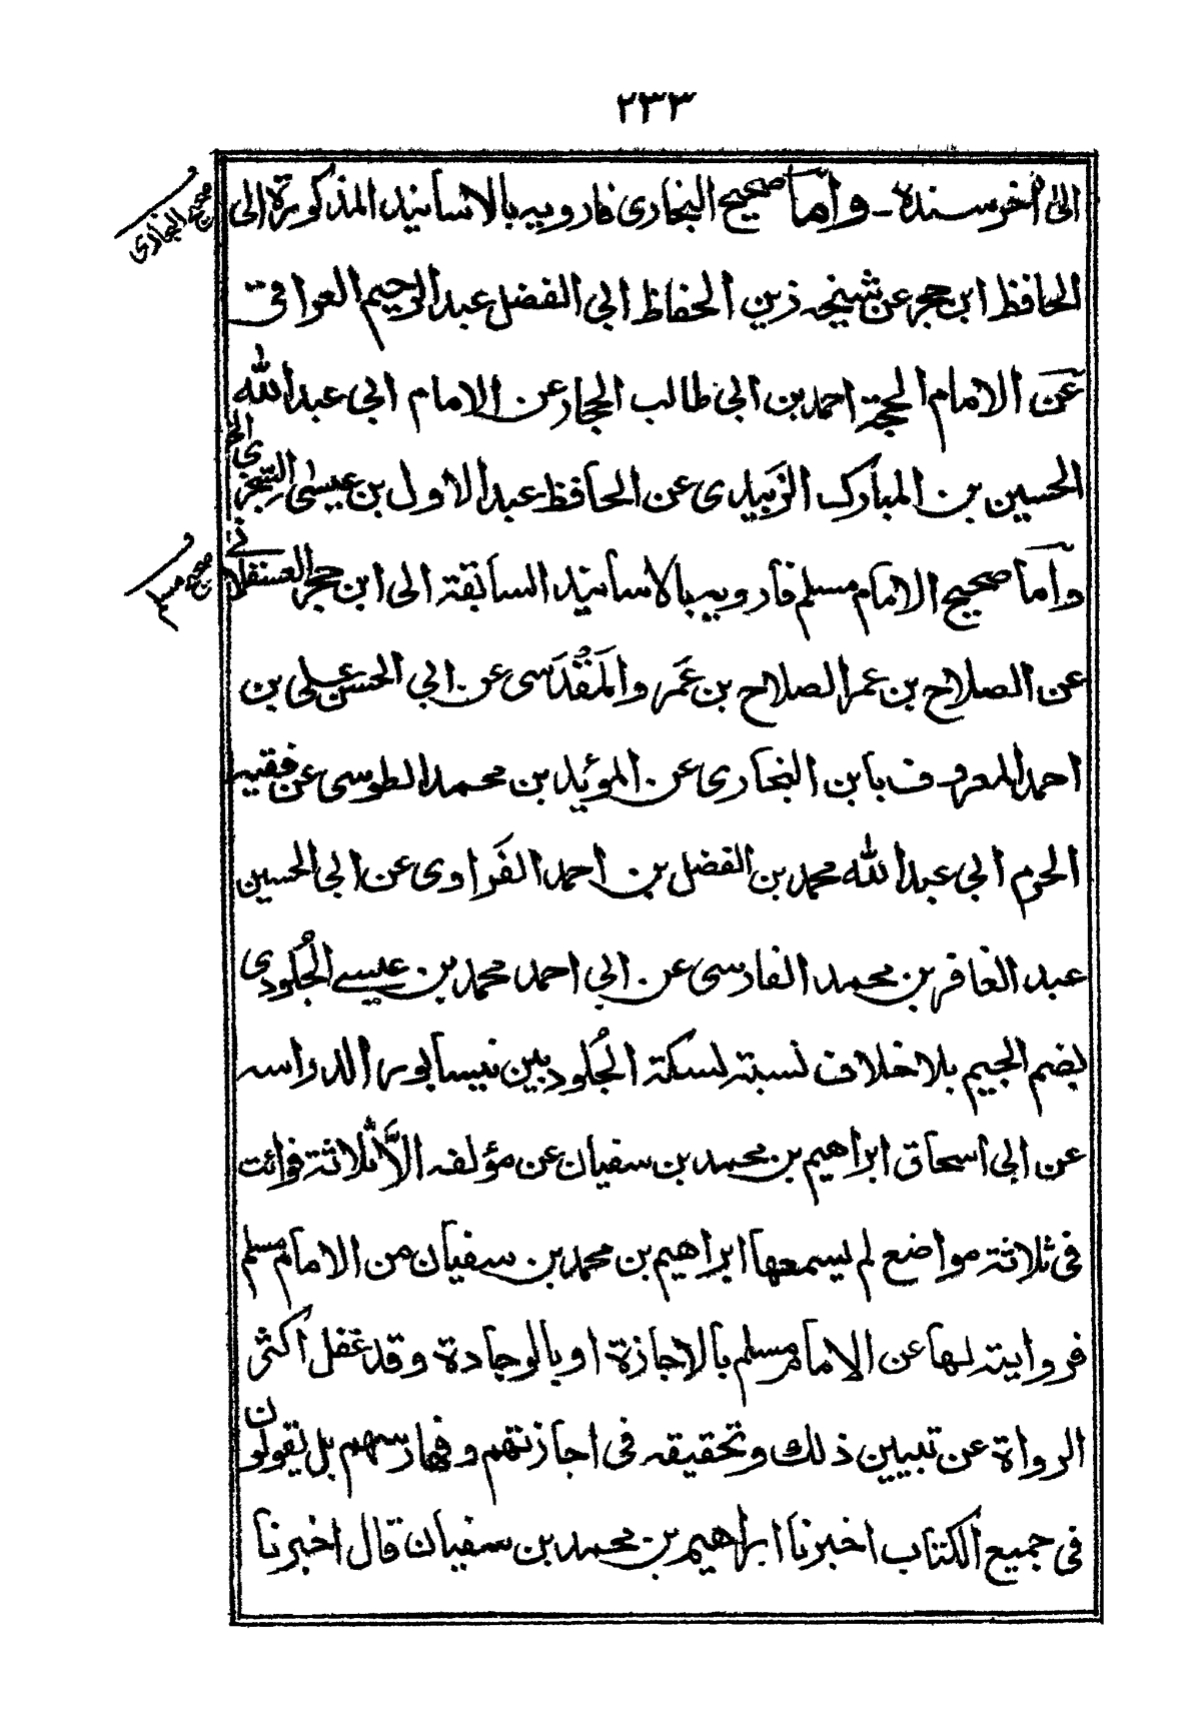 ٢٣٣
الى اٰخر سنده ـ واما صحيح البخارى فارويه بالاسانيد المذكورة الى
صحيح البخارى
الحافظ ابن حجر عن شيخه زين الحفاظ ابى الفضل عبد الرحيم العراقى
عن الامام الحجة احمد بن ابى طالب الحجار عن الامام ابى عبد الله
الحسين بن المبارك الزَبيدى عن الحافظ عبد الاول بن عيسىٰ السِّجزى الخ
واما صحيح الامام مسلم فارويه بالاسانيد السابقة الى ابن حجر العسقلانى
صحيح مسلم
عن الصلاح بن عمر الصلاح بن عَمر والمَقْدَسى عن ابى الحسن على بن
احمد المعروف بابن البخارى عن الموئد بن محمد الطوسى عن فقيه
الحرم ابى عبد الله محمد بن الفضل بن احمد الفَراوى عن ابى الحسين
عبد الغافر بن محمد الفارسى عن ابى احمد محمد بن عيسے الجُلودى
بضم الجيم بلا خلاف نسبة لسكة الجُلودبين نيسابور الدراسه
عن ابى اسحاق ابراهيم بن محمد بن سفيان عن مؤلفه الاَّ ثلاثة فوائت
فى ثلاثة مواضع لم يسمعها ابراهيم بن محمد بن سفيان من الامام مسلم
فروايته لها عن الامام مسلم بالاجازة او بالوجادة وقد غفل اكثر
الرواة عن تبيين ذلك وتحقيقه فى اجازتهم وفهارسهم بل يقولون
فى جميع الكتاب اخبرنا ابراهيم بن محمد بن سفيان قال اخبرنا